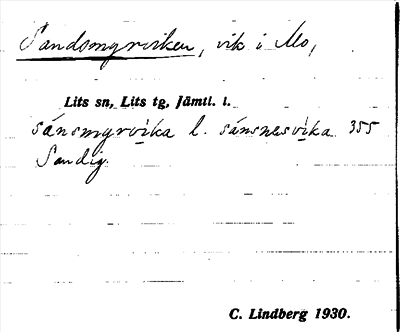 Sandsmyrviken, vik i Mo,
Lits sn, Lits tg, Jämtl. l.
sánsmyrvika l. sánsnesvika 355
Sandig.
C. Lindberg 1930.